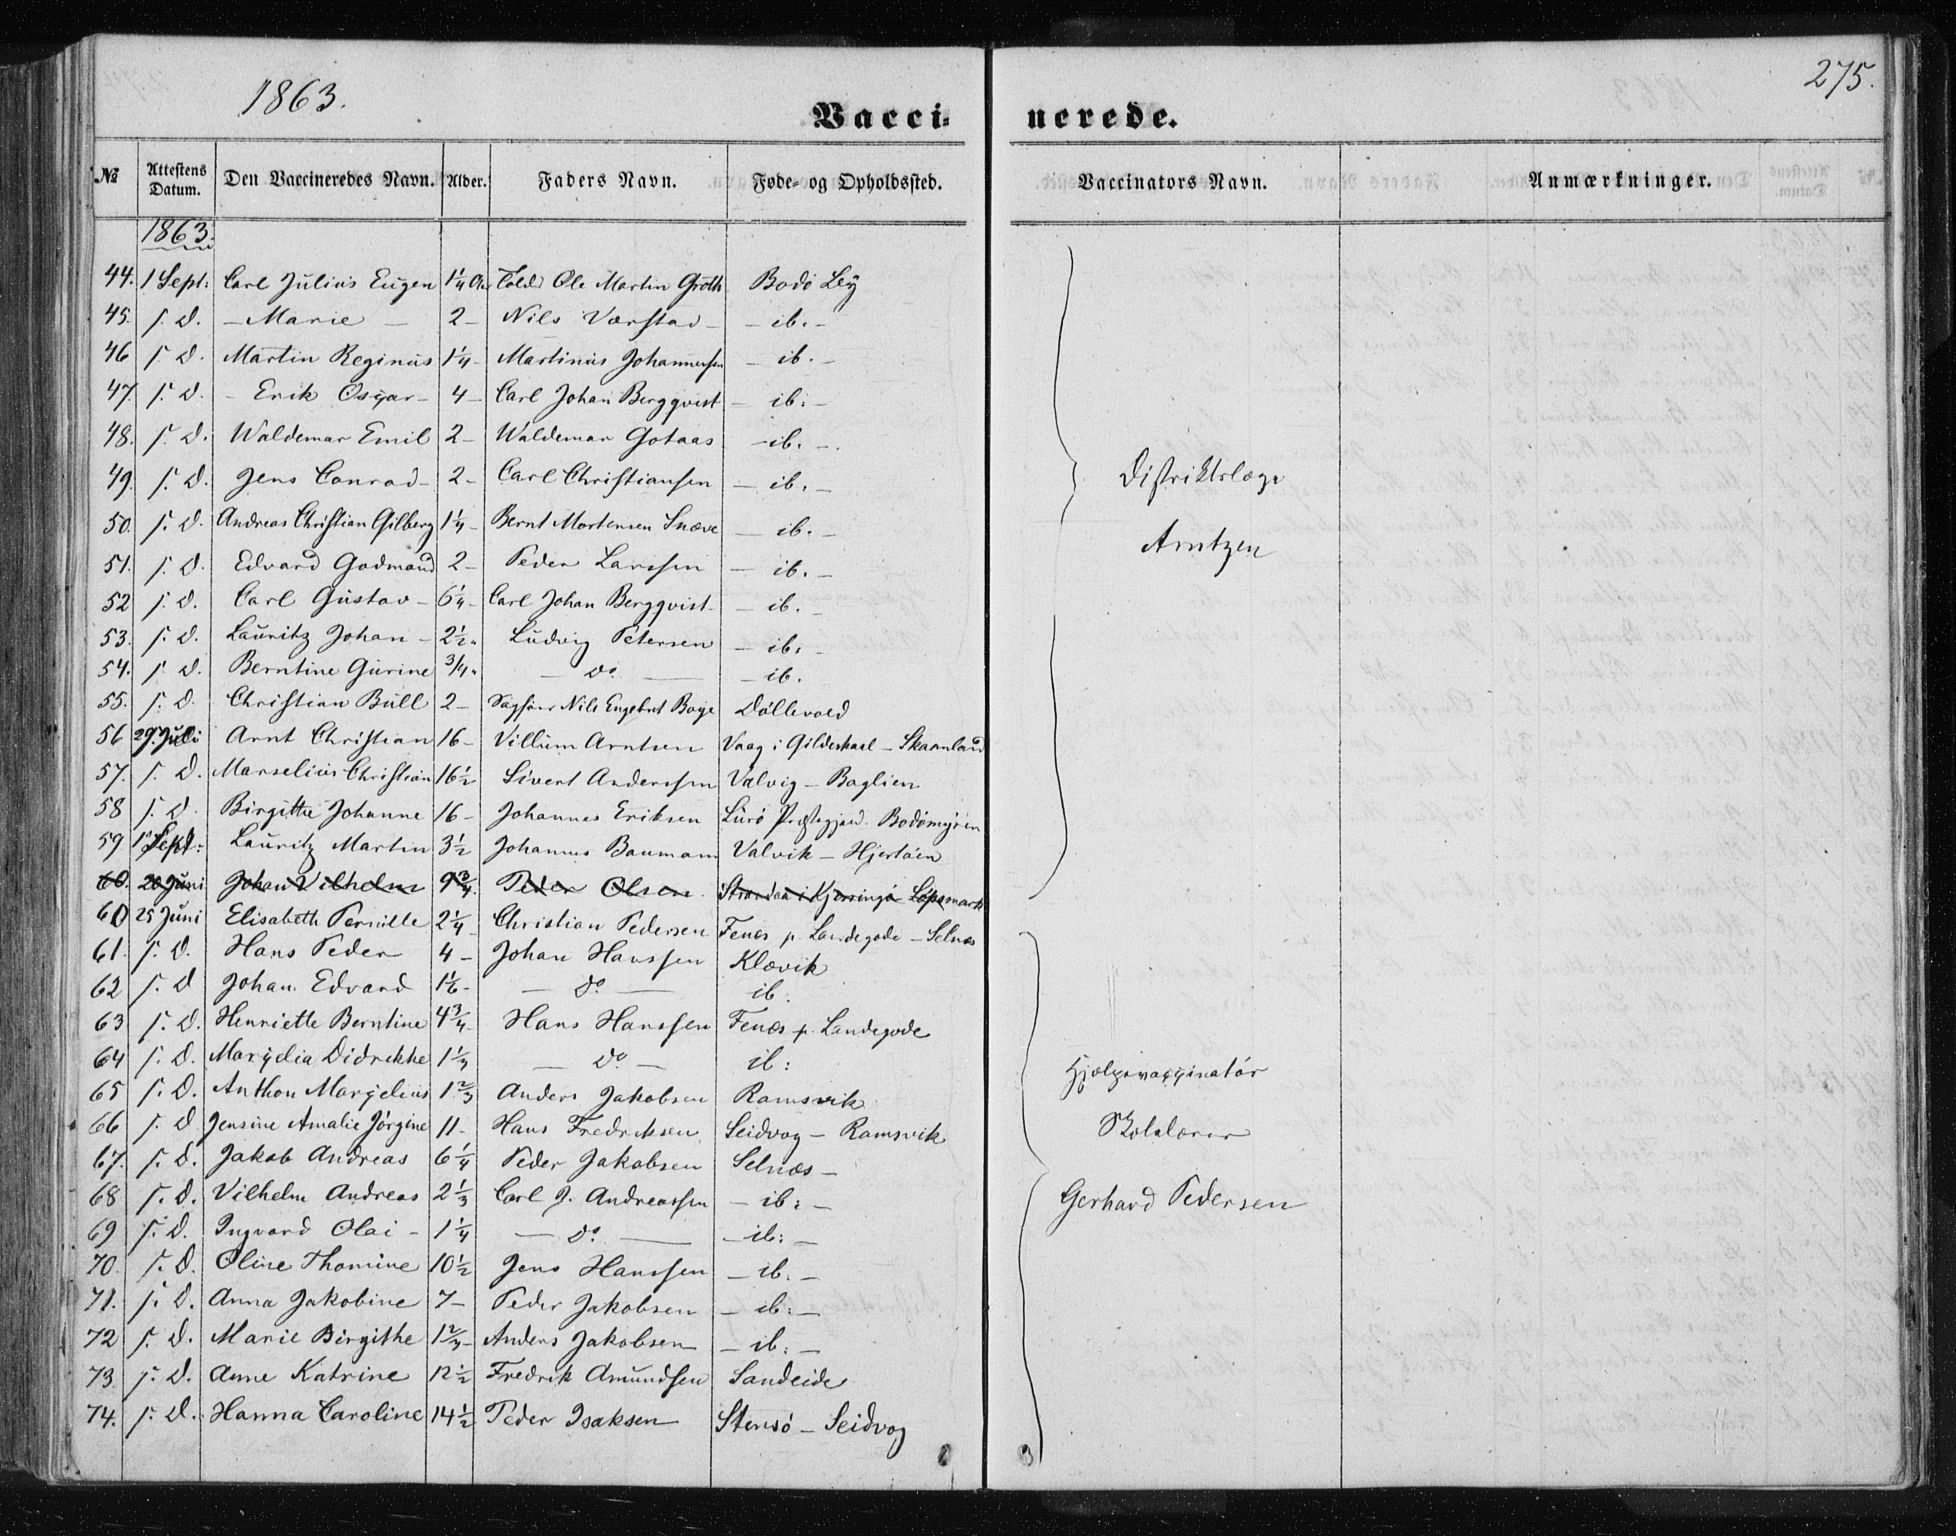 1863.
275.
Vacci=
nerede.
№ Attestens Datum. Den Vaccineredes Navn. Alder. Faders Navn. Føde- og Opholdssted. Vaccinators Navn. Anmærkninger.
1863.
44. 1 Sept: Carl Julius Eugen 1¼ Ole Martin Groth Bodö
45. s. D. – Marie – 2 – Nils Værstad – – ib. –
46 s. D. Martin Reginus 1¼ – Martinus Johannessen – ib. –
47. s. D. – Erik Osçar – 4 – Carl Johan Bergqvist – ib: –
48. s. D. Waldemar Emil 2 – Waldemar Gotaas – ib. –
49. s. D. Jens Conrad – 2 – Carl Christiansen – ib. –
50. s. D. Andreas Christian Gilberg 1¼ – Bernt Mortensen Snæve – ib. –
51. s. D. Edvard Godmand 2 – Peder Larssen – ib. –
52 s. D. Carl Gustav – 6¼ – Carl Johan Bergqvist – – ib. –
53. s. D. Lauritz Johan – 2½ " Ludvig Petersen – ib. –
54. s. D. Berntine Gurine 3/4 " – do – – ib.
55. s. D. Christian Bull 2 – Nils Engebret
56 29. Juli Arnt Christian 16 – Villum Arntsen Vaag i Gildeskaal – Skaanland
57. s. D. Marselius Christian 16½ Sivert Anderssen Valvig – Baglien
58 s. D. Birgitte Johanne 16 – Johannes Eriksen Lurö Præstegjæld. Bodömyren
59 1 Sept: Lauritz Martin 3½ Johannes Baumann Valvik – Hjertöen
60. 20 Juni Johan Vilhelm 9¾ Peder Olsen Strandaa i Kjerringö Löpsmark
60 25 Juni Elisabeth Pernille 2¼ Christian Pedersen Fenes p. Landegode – Selnæs
61. s. D. Hans Peder 4 – Johan Hanssen Klævik
62 s. D Johan Edvard 1⅙ – – do – ib.
63 s. D. Henriette Berntine 4¾ – Hans Hanssen Fenæs p. Landegode
64 s. D. Marçelia Didrikke 1⅓ – do – ib:
65 s. D. Anthon Marçelius 1⅔ Anders Jakobsen Ramsvik
66 s. D Jensine Amalie Jörgine 11 – Hans Fredriksen Seidvog – Ramsvik
67. s. D. Jakob Andreas 6¼ Peder Jakobsen Selnæs –
68 s. D. Vilhelm Andreas 2⅓ Carl J. Andreassen – ib: –
69 s. D. Ingvard Olai – 1¼ – do – – ib: –
70. s. D. Oline Thomine 10½ Jens Hanssen – ib. –
71. s. D. Anna Jakobine 7 – Peder Jakobsen – ib: –
72 s. D. Marie Birgithe 1⅔ – Anders Jakobsen – ib: –
73. s. D. Anne Katrine 12½ Fredrik Amundsen Sandeide
74. s. D. Hanna Caroline 14½ Peder Isaksen Stensö – Seidvog
Distriktslæge
Arntzen
Hjælpevaççinatör
Skolelærer
Gerhard Pedersen